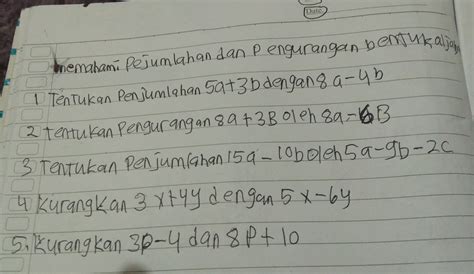 Date:
memahami Pejumlahan dan Pengurangan bentuk aljab
1 TenTukan Penjumlahan 5a+3b dengan 8a-4b
2 tentukan Pengurangan 8a+3B oleh 8a-6B
3 Tentukan Penjumlahan 15a-10b oleh 5a-9b-2c
4 Kurangkan 3x+4y dengan 5x-6y
5. Kurangkan 3p-4 dan 8p+10